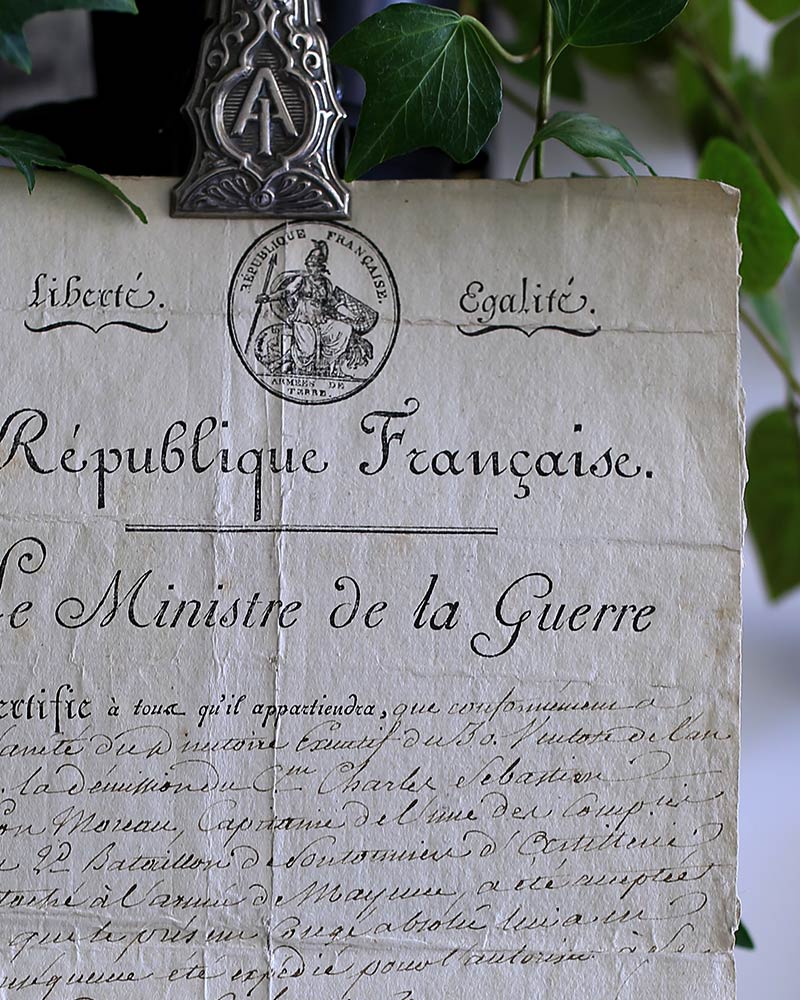 AI
RÉPUBLIQUE FRANÇAISE.
Liberté.
Egalité.
ARMÉES DE
TERRE.
République Française.
Le Ministre de la Guerre
ertifie à tous qu'il appartiendra, que conformément à
du Directoire Exécutif du 30. Ventose de l'an
la démission du C.en Charles Sébastien
on Moreau, Capitaine de l'une des Comp.ies
2.d Bataillon de Pontonniers d'Artillerie
taché à l'armée de Mayence, a été acceptée
que le présent Congé absolu lui a en
été expédié pour l'autoriser à se